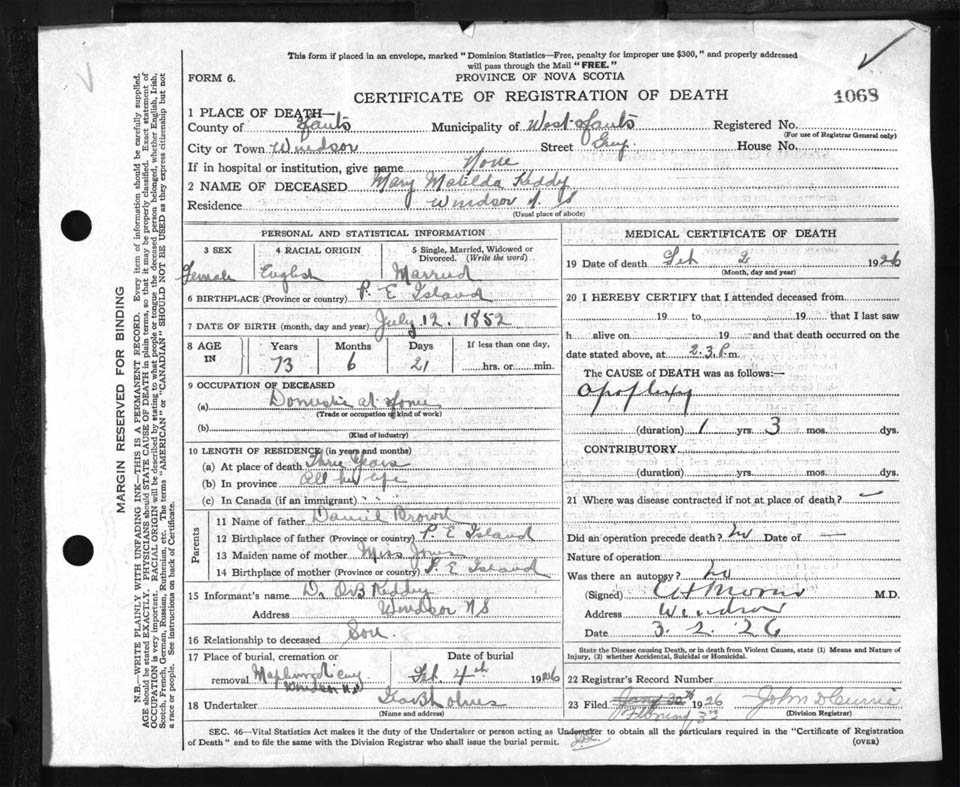 This form if placed in an envelope, marked "Dominion Statistics—Free, penalty for improper use $300," and properly addressed
will pass through the Mail "FREE."
FORM 6. PROVINCE OF NOVA SCOTIA
CERTIFICATE OF REGISTRATION OF DEATH 1068
1 PLACE OF DEATH—
County of Hants Municipality of West Hants Registered No.
(For use of Registrar General only)
City or Town Windsor Street House No.
If in hospital or institution, give name None
2 NAME OF DECEASED Mary Matilda Keddy
Residence Windsor N. S
(Usual place of abode)
PERSONAL AND STATISTICAL INFORMATION
3 SEX 4 RACIAL ORIGIN 5 Single, Married, Widowed or Divorced. (Write the word)
Female English Married
6 BIRTHPLACE (Province or country) P. E Island
7 DATE OF BIRTH (month, day and year) July 12. 1852
8 AGE IN Years Months Days If less than one day,
73 6 21 hrs. or min.
9 OCCUPATION OF DECEASED
(a) Domestic at Home
(Trade or occupation of kind of work)
(b)
(Kind of industry)
10 LENGTH OF RESIDENCE (in years and months)
(a) At place of death Three Years
(b) In province All her life
(c) In Canada (if an immigrant)
Parents
11 Name of father Daniel Brown
12 Birthplace of father (Province or country) P. E Island
13 Maiden name of mother Miss Jones
14 Birthplace of mother (Province or country) P. E Island
15 Informant's name Dr OB Keddy
Address Windsor NS
16 Relationship to deceased Son.
17 Place of burial, cremation or removal Date of burial
Maplewood Cemy Feb 4th 1926
Windsor N.S
18 Undertaker Geo B Holmes
(Name and address)
MEDICAL CERTIFICATE OF DEATH
19 Date of death Feb 2 1926
(Month, day and year)
20 I HEREBY CERTIFY that I attended deceased from
19 to 19 that I last saw
h alive on 19 and that death occurred on the
date stated above, at 2.3 P.m.
The CAUSE of DEATH was as follows:—
Apoplexy
(duration) 1 yrs. 3 mos. dys.
CONTRIBUTORY
(duration) yrs. mos. dys.
21 Where was disease contracted if not at place of death? —
Did an operation precede death? No Date of —
Nature of operation
Was there an autopsy? No
(Signed) Morris M.D.
Address Windsor
Date 3. 2. 26
State the Disease causing Death, or in death from Violent Causes, state (1) Means and Nature of
Injury, (2) whether Accidental, Suicidal or Homicidal.
22 Registrar's Record Number
23 Filed Jany 30th 1926 John D Currie
February 3rd (Division Registrar)
SEC. 46—Vital Statistics Act makes it the duty of the Undertaker or person acting as Undertaker to obtain all the particulars required in the "Certificate of Registration
of Death" and to file the same with the Division Registrar who shall issue the burial permit. (OVER)
MARGIN RESERVED FOR BINDING
N.B.—WRITE PLAINLY WITH UNFADING INK—THIS IS A PERMANENT RECORD. Every item of information should be carefully supplied.
AGE should be stated EXACTLY. PHYSICIANS should STATE CAUSE OF DEATH in plain terms, so that it may be properly classified. Exact statement of
OCCUPATION is very important. RACIAL ORIGIN will be described by stating to what people or tongue the deceased person belonged, whether English, Irish,
Scotch, French, German, Russian, Ruthenian, etc. The terms "AMERICAN" or "CANADIAN" SHOULD NOT BE USED as they express citizenship but not
a race or people. See instructions on back of Certificate.